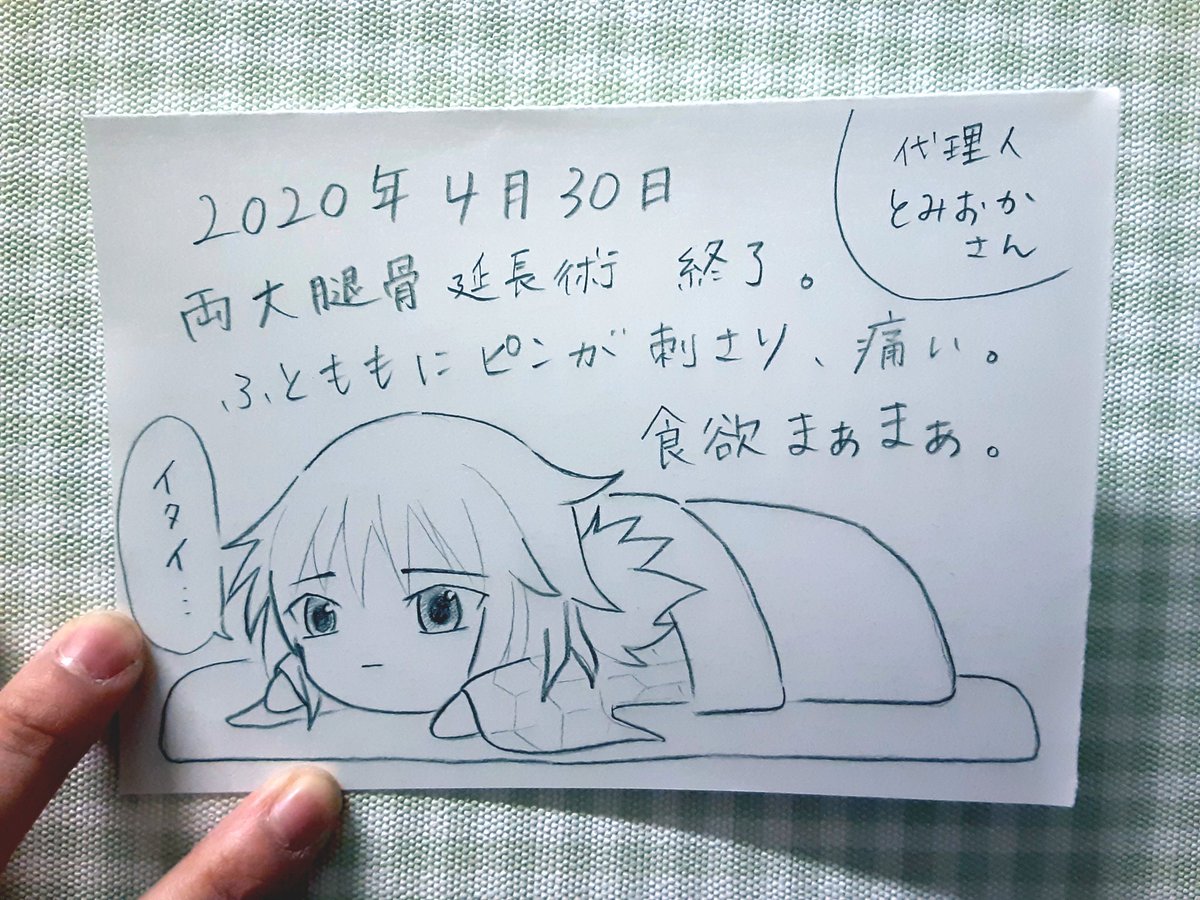 2020年4月30日
両大腿骨延長術 終了。
ふとももにピンが刺さり、痛い。
食欲まぁまぁ。
代理人
とみおか
さん
イタイ……